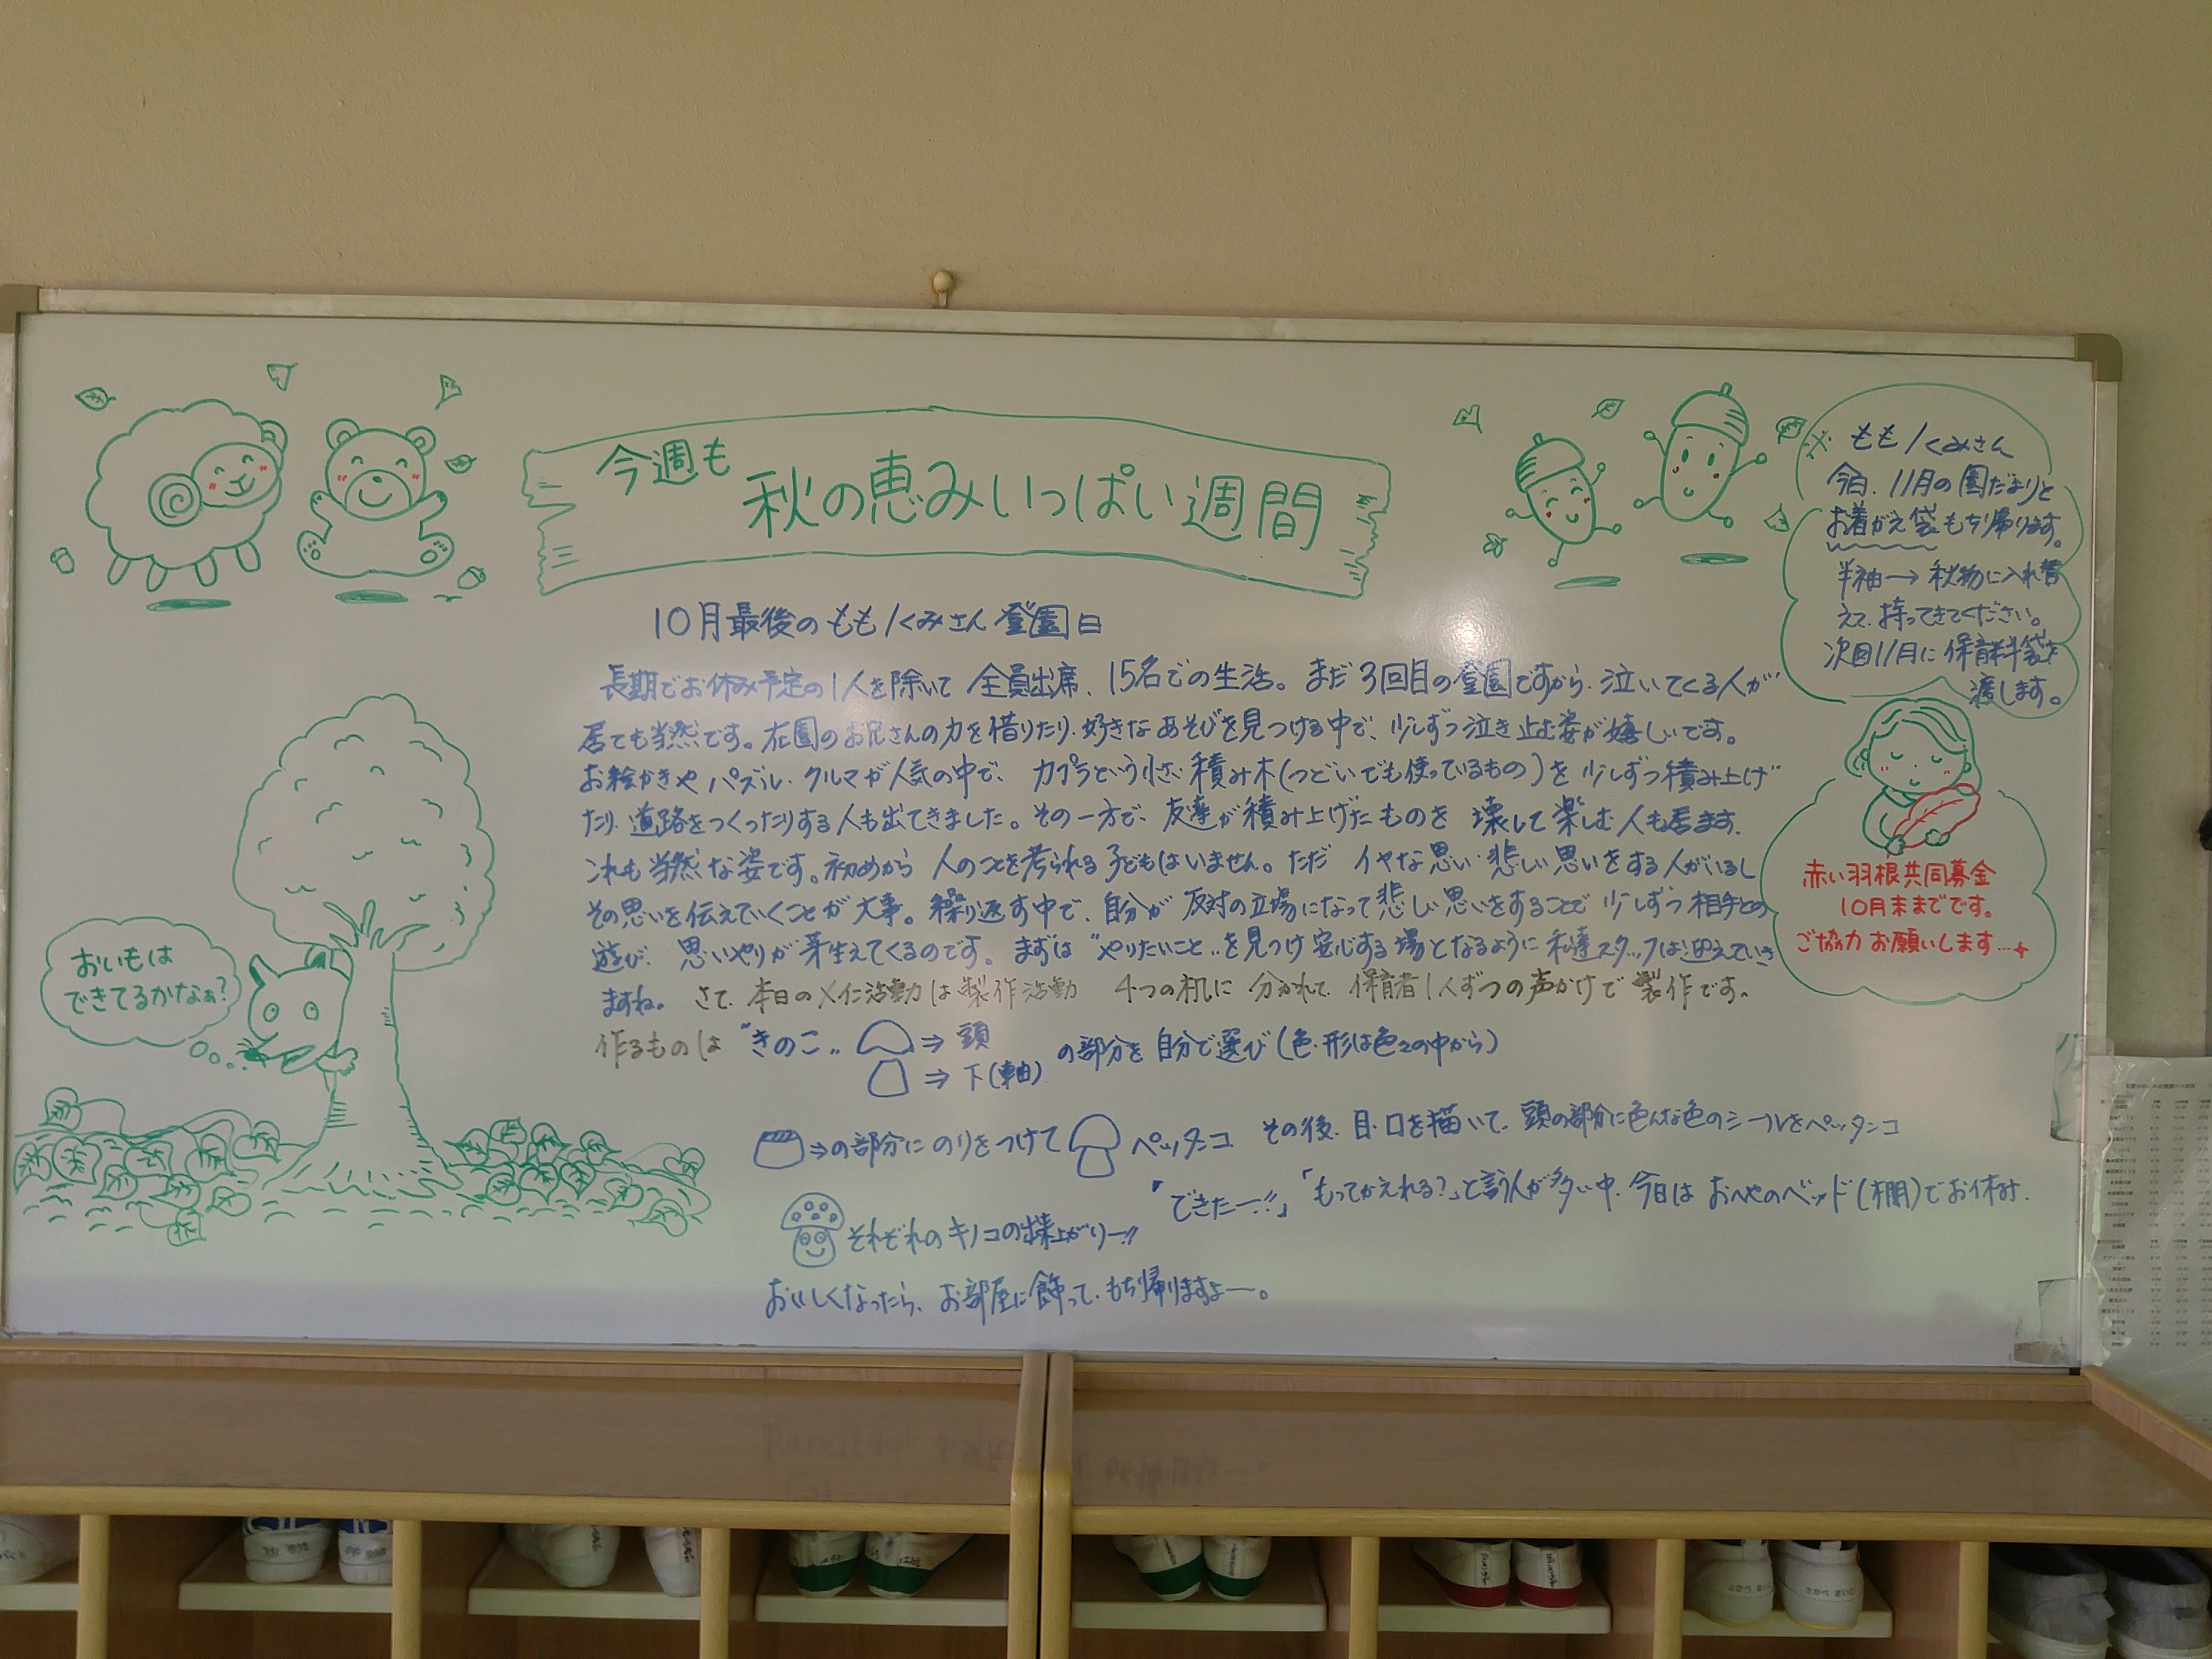 今週も
秋の恵みいっぱい週間
10月最後のもも1くみさん登園日
長期でお休み予定の1人を除いて 全員出席、15名での生活。まだ3回目の登園ですから、泣いてくる人が
居ても当然です。在園のお兄さんの力を借りたり、好きなあそびを見つける中で、少しずつ泣き止む姿が嬉しいです。
お絵かきやパズル・クルマが人気の中で、カプラという小さい積み木(つどいでも使っているもの)を少しずつ積み上げ
たり、道路をつくったりする人も出てきました。その一方で、友達が積み上げたものを 壊して楽しむ人も居ます。
これも当然な姿です。初めから 人のことを考られる子どもはいません。ただ イヤな思い・悲しい思いをする人がいるし
その思いを伝えていくことが大事。繰り返す中で、自分が反対の立場になって悲しい思いをすることで少しずつ相手との
遊び、思いやりが芽生えてくるのです。まずは"やりたいこと"を見つけ安心する場となるように私達スタッフは迎えていき
ますね。さて、本日のメイン活動は製作活動 4つの机に分かれて、保育者1人ずつの声かけで製作です。
作るものは"きのこ" ⇒頭
⇒下(軸)
の部分を自分で選び(色・形は色々の中から)
⇒の部分にのりをつけて ペッタンコ その後、目・口を描いて、頭の部分に色んな色のシールをペッタンコ
それぞれのキノコの出来上がりー!!
「できたー!!」「もってかえれる?」と言う人が多い中、今日はおへやのベッド(棚)でお休み。
おいしくなったら、お部屋に飾って、もち帰りますよー。
おいもは
できてるかなぁ?
※ もも1くみさん
今日、11月の園だよりと
お着がえ袋もち帰ります。
半袖→秋物に入れ替
えて、持ってきてください。
次回11月に保育料袋を
渡します。
赤い羽根共同募金
10月末までです。
ご協力お願いします…